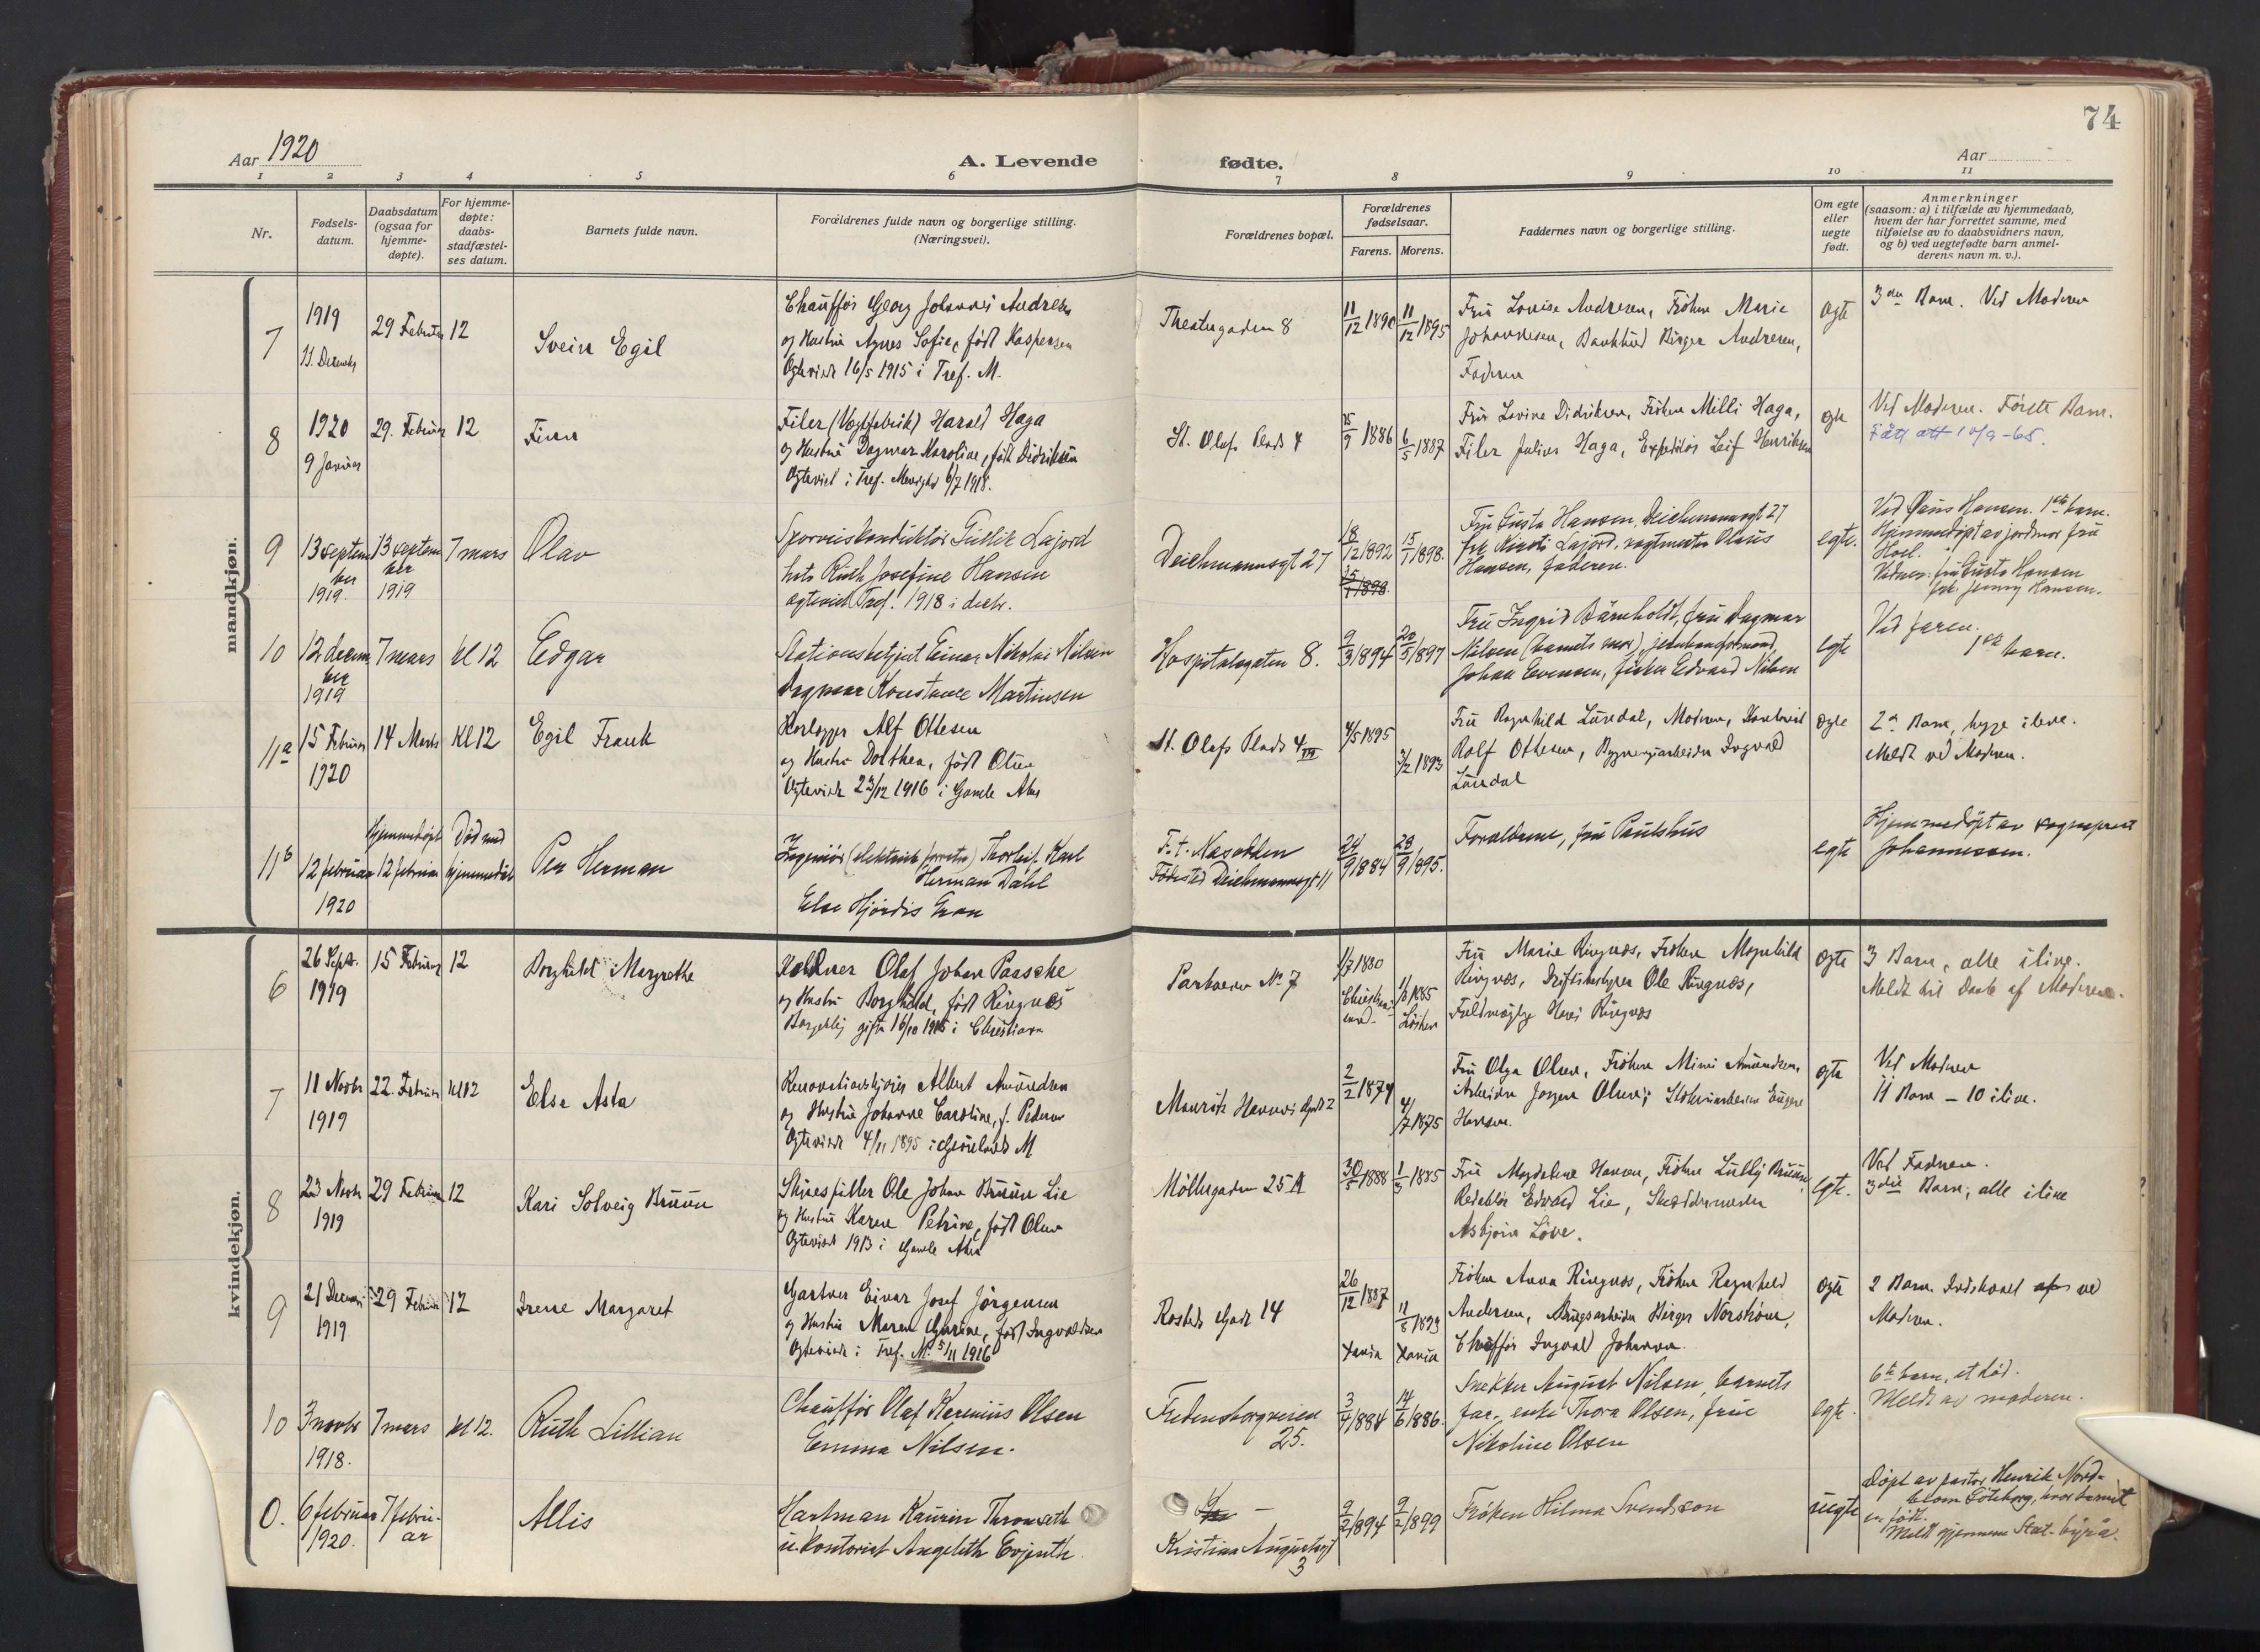 74
Aar 1920
A. Levende fødte.
Aar
1 2 3 4 5 6 7 8 9 10 11
Nr.
Fødsels-
datum.
Daabsdatum
(ogsaa for
hjemme-
døpte).
For hjemme-
døpte:
daabs-
stadfæstel-
ses datum.
Barnets fulde navn.
Forældrenes fulde navn og borgerlige stilling.
(Næringsvei).
Forældrenes bopæl.
Forældrenes
fødselsaar.
Farens. Morens.
Faddernes navn og borgerlige stilling.
Om egte
eller
uegte
født.
Anmerkninger
(saasom: a) i tilfælde av hjemmedaab,
hvem der har forrettet samme, med
tilføielse av to daabsvidners navn,
og b) ved uegtefødte barn anmel-
derens navn m. v.).
mandkjøn.
7
1919
11. Decembr
29 Februar
12
Svein Egil
Chauffør Georg Johannes Andresen
og Hustru Agnes Sofie, født Kaspersen
Ogteviet 16/5 1915 i Tref. M.
Theatergaden 8
11/12 1890
11/12 1895
Fru Lovise Andresen, Frøken Marie
Johannesen, Bankbud Birger Andresen,
Faderen
ogte
3die Barn. Ved Moderen
8
1920
9 Januar
29. Februar
12
Finn
Filer (Vægtfabrik) Harald Haga
og Hustru Dagmar Karoline, født Didriksen
Ogteviet i Tref. Menighed 6/7 1918.
St. Olafs Plads 4
15/9 1886
6/5 1887
Fru Lovine Didriksen, Frøken Milli Haga,
Filer Julius Haga, Expeditør Leif Henriksen
ogte
Ved Moderen. Første Barn.
Fått att 10/9-65.
9
13 septem
ber
1919
13 septem
ber
1919
7 mars
Olav
Sporveiskonduktør Gullik Lajord
hstr Ruth Josefine Hansen
egteviet Tref. 1918 i decbr.
Deichmannsgt 27
18/12 1892
15/1 1898.
Fru Gusta Hansen, Deichmannsgt 27
frk Kirsti Lajord, vagtmester Olaus
Hansen, faderen.
egte.
Ved Olaus Hansen. 1ste barn.
Hjemmedøpt av jordmor fru
Vidner: fru Gusta Hansen
frk. Jenny Hansen.
10
12 decem
ber
1919
7 mars
kl 12
Edgar
Stationsbetjent Einar Nikolai Nilsen
Dagmar Konstance Martinsen
Hospitalsgaten 8.
9/3 1894
20/5 1897
Fru Ingrid Bärnholdt, fru Dagmar
Nilsen (barnets mor), jernbaneformand
Johan Evensen, fisker Edvard Nilsen
egte
Ved faren.
1ste barn.
11a
15 Februar
1920
14 Marts
Kl 12
Egil Frank
Alf Ottesen
og Hustru Dorthea, født Olsen
Ogteviet 23/12 1916 i Gamle Aker
St. Olafs Plads 4 III
4/5 1895
3/2 1893
Fru Ragnhild Lundal, Moderen,
Rolf Ottesen, Bygningsarbeider Ingvald
Lundal
ogte
2d Barn, begge ilive.
Meldt ved Moderen.
11b
12 februar
1920
Hjemmedøpt
12 februar
Død med
hjemmedåb
Per Herman
Ingeniør (elektrisk forretn) Thorleif Karl
Herman Dahl
Else Hjørdis Gran
F. t. Nesodden
Fødested Deichmannsgt 11
24/9 1884
28/9 1895.
Forældrene, fru Paulshus
egte
Hjemmedøpt av sogneprest
Johannessen.
kvindekjøn.
6
26 Septr.
1919
15 Februar
12
Borghild Margrethe
Kellner Olaf Johan Paaske
og Hustru Borghild, født Ringnæs
Borgerlig gifte 16/10 1915 i Christiania
Parkveien No 7
1/7 1880
Fru Marie Ringnæs, Frøken Magnhild
Ringnæs, Driftsbestyrer Ole Ringnæs,
Fuldmægtig Hans Ringnæs
ogte
3 Barn, alle ilive.
Meldt til Daab af Moderen.
7
11 Novbr
1919
22. Februar
Kl 12
Else Asta
Renovationskjører Albert Amundsen
og Hustru Johanne Caroline, f. Pedersen
Ogteviet 4/11 1895 i Grønlands M
Mauritz Hansens Gade 2
2/2 1874
4/7 1875
Fru Olga Olsen, Frøken Mimi Amundsen,
Arbeider Jørgen Olsen, Eugene
Hansen.
ogte
Ved Moderen
11 Barn – 10 ilive.
8
23 Novbr
1919
29 Februar
12
Kari Solveig Bruun
Skuespiller Ole Johan Bruun Lie
og Hustru Karen Petrine, født Olsen
Ogteviet 1913 i Gamle Aker
Møllergaden 25 A
30/5 1888
1/3 1885
Fru Magdalene Hansen, Frøken Lully Bruun,
Redaktør Edvard Lie, Skræddermester
Asbjørn Løve.
egte.
Ved Faderen.
3die Barn, alle ilive
9
21 Decem
1919
29 Februar
12
Irene Margaret
Gartner Einar Josef Jørgensen
og Hustru Maren Gurine, født Ingvaldsen
Ogteviet i Tref. M. 5/11 1916
Rosteds Gade 14
26/12 1887
Xania
11/8 1893
Xania
Frøken Anna Ringnæs, Frøken Ragnhild
Andersen, Brugsarbeider Birger Norstrøm,
Chauffør Ingvald Johansen.
ogte
2 Barn. Indskrevet ved
Moderen.
10
3 novbr
1918.
7 mars
kl 12.
Ruth Lillian
Chauffør Olaf Karenius Olsen
Emma Nilsen.
Fredensborgveien
25.
3/4 1884
14/6 1886.
Snekker August Nilsen, barnets
far, enke Thora Olsen, frue
Nikoline Olsen
egte.
6te barn, et død.
Meldt av moderen.
0.
6 februar
1920.
7 febru-
ar
Allis
Hartman Kaurin Thronsæth
u. kontorist Angelith Evjenth
Kristian Augustsgt
3
9/2 1894
9/2 1899
Frøken Hilma Svendsson
uegte
Døpt av pastor Henrik Nord-
blom Göteborg, hvor barnet
er født.
Meldt gjennem Stat. byrå.